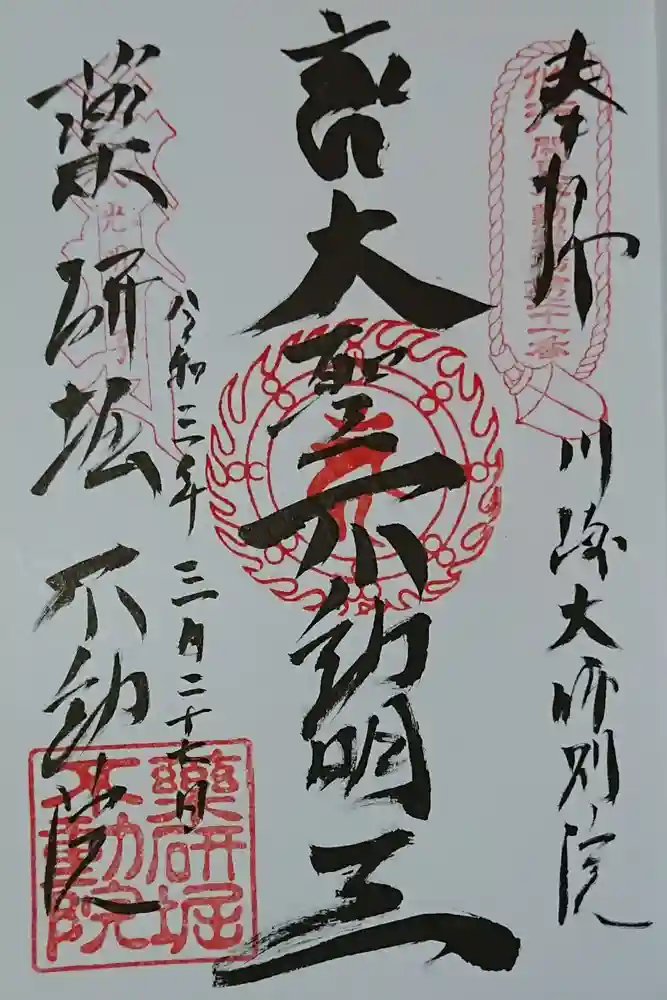 奉拝
川崎大師別院
大聖不動明王
令和三年三月二十七日
薬研堀不動院
藥研堀
不動院